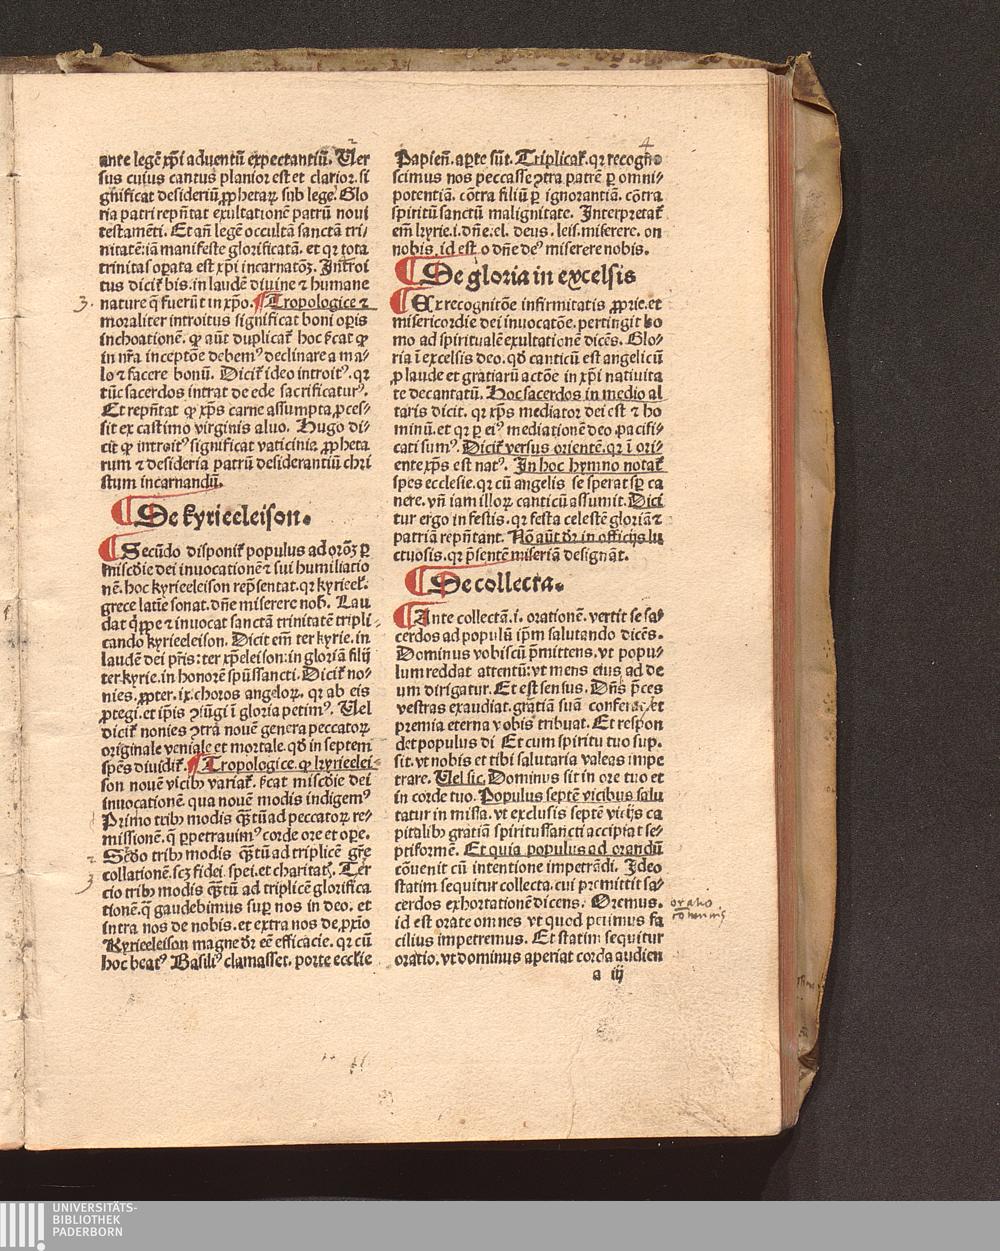 ante legē xp̄i aduentū expectantiū. Uer
sus cuius cantus planior est et clarior. si
gnificat desideriū ꝓphetaꝝ sub lege. Glo
ria patri rep̄ntat exultationē patrū noui
testamēti. Et añ legē occultā sanctā tri⸗
nitatē: iā manifeste glorificatā. et qꝛ tota
trinitas oꝑata est xp̄i incarnatōꝫ. Introi
tus dicit̄ bis. in laudē diuine ⁊ humane
nature q̄ fuerūt in xp̄o. ¶ Tropologice ⁊
moraliter introitus significat boni oꝑis
inchoationē. ꝙ aūt duplicat̄ hoc
in nr̄a inceptōe debemꝰ declinare a ma⸗
lo ⁊ facere bonū. Dicit̄ ideo introitꝰ. qꝛ
tūc sacerdos intrat de ede sacrificaturꝰ.
Et rep̄ntat ꝙ xp̄s carne assumpta ꝓces⸗
sit ex castimo virginis aluo. Hugo di⸗
cit ꝙ introitꝰ significat vaticinia ꝓpheta
rum ⁊ desideria patrū desiderantiū chri
stum incarnandū.
¶ De kyrieeleison.
¶ Secūdo disponit̄ populus ad orōꝫ ꝑ
mis̄cdie dei inuocationē ⁊ sui humiliatio
nē. hoc kyrieeleison rep̄sentat. qꝛ kyrieel̄.
grece latīe sonat. dn̄e miserere nob̄. Lau
dat q̄ꝑpe ⁊ inuocat sanctā trinitatē tripli⸗
cando kyrieeleison. Dicit em̄ ter kyrie. in
laudē dei pr̄is: ter xp̄eleison: in gloriā filij
ter kyrie. in honorē sp̄ussancti. Dicit̄ no⸗
nies. ꝓpter. ix. choros angeloꝝ. qꝛ ab eis
ꝓtegi. et ip̄is ꝯiūgi ī gloria petimꝰ. Uel
dicit̄ nonies ꝯtra nouē genera peccatoꝝ
originale veniale et mortale. qd̄ in septem
sp̄es diuidit̄. ¶ Tropologice. ꝙ kyrieelei⸗
son nouē vicibꝫ variat̄. mis̄cdie dei
inuocationē qua nouē modis indigemꝰ
Primo tribꝫ modis q̄ꝫtū ad peccatoꝝ re⸗
missionē. q̄ ꝑpetrauimꝰ corde ore et oꝑe.
Secd̄o tribꝫ modis q̄ꝫtū ad triplicē gr̄e
collationē. scꝫ fidei spei. et charitat̄. Ter
cio tribꝫ modis q̄ꝫtū ad triplicē glorifica
tionē. q̄ gaudebimus suꝑ nos in deo. et
intra nos de nobis. et extra nos de ꝓxīo
Kyrieeleison magne dr̄ eē efficacie. qꝛ cū
hoc beatꝰ Basiliꝰ clamasset. porte ecclie
Papieñ. aꝑte sūt. Triplicat̄. qꝛ recogno
scimus nos peccasse ꝯtra patrē ꝑ omni⸗
potentiā. cōtra filiū ꝑ ignorantiā. cōtra
spiritū sanctū malignitate. Interpretat̄
em̄ kyrie. i. dn̄e. el. deus. leis. miserere. on
nobis. id est o dn̄e deꝰ miserere nobis.
¶ De gloria in excelsis
¶ Ex recognitōe infirmitatis ꝓprie. et
misericordie dei inuocatōe. pertingit ho
mo ad spiritualē exultationē dicēs. Glo⸗
ria ī excelsis deo. qd̄ canticū est angelicū
ꝓ laude et gratiarū actōe in xp̄i natiuita
te decantatū. Hoc sacerdos in medio al
taris dicit. qꝛ xp̄s mediator dei est ⁊ ho
minū. et qꝛ ꝑ eiꝰ mediationē deo pacifi⸗
cati sumꝰ. Dicit̄ versus orientē. qꝛ ī ori⸗
ente xp̄s est natꝰ. In hoc hymno notat̄
spes ecclesie. qꝛ cū angelis se sperat sꝑ ca
nere. vn̄ iam illoꝝ canticū assumit. Dici
tur ergo in festis. qꝛ festa celestē gloriā ⁊
patriā rep̄ntant. Nō aūt dr̄ in officijs lu
ctuosis. qꝛ p̄sentē miseriā designāt.
¶ De collecta.
¶ Ante collectā. i. orationē. vertit se sa⸗
cerdos ad populū ip̄m salutando dicēs.
Dominus vobiscū p̄mittens. vt popu⸗
lum reddat attentū: vt mens eius ad de
um dirigatur. Et est sensus. Dn̄s p̄ces
vestras exaudiat. gratiā suā conferat et
premia eterna vobis tribuat. Et respon
det populus di Et cum spiritu tuo sup.
sit. vt nobis et tibi salutaria valeas impe
trare. Uel sic. Dominus sit in ore tuo et
in corde tuo. Populus septē vicibus salu
tatur in missa. vt exclusis septē vicijs ca
pitalibꝫ gratiā spiritussancti accipiat se⸗
ptiformē. Et quia populus ad orandū
cōuenit cū intentione impetrādi. Ideo
statim sequitur collecta. cui premittit sa⸗
cerdos exhortationē dicens. Oremus.
id est orate omnes vt quod petimus fa
cilius impetremus. Et statim sequitur
oratio. vt dominus aperiat corda audien
a iij
4
3.
2
3
oratio
UNIVERSITÄTS-
BIBLIOTHEK
PADERBORN